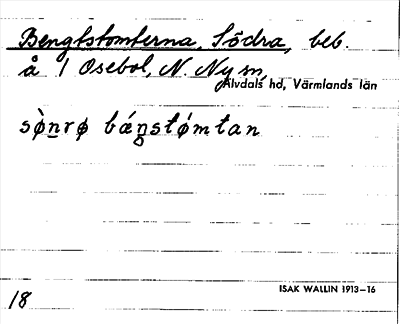 Bengtstomterna, Södra, beb.
å 1 Osebol, N. Ny sn,
Älvdals hd, Värmlands län
sø̀nrø báŋstǿmtan
ISAK WALLIN 1913–16
18